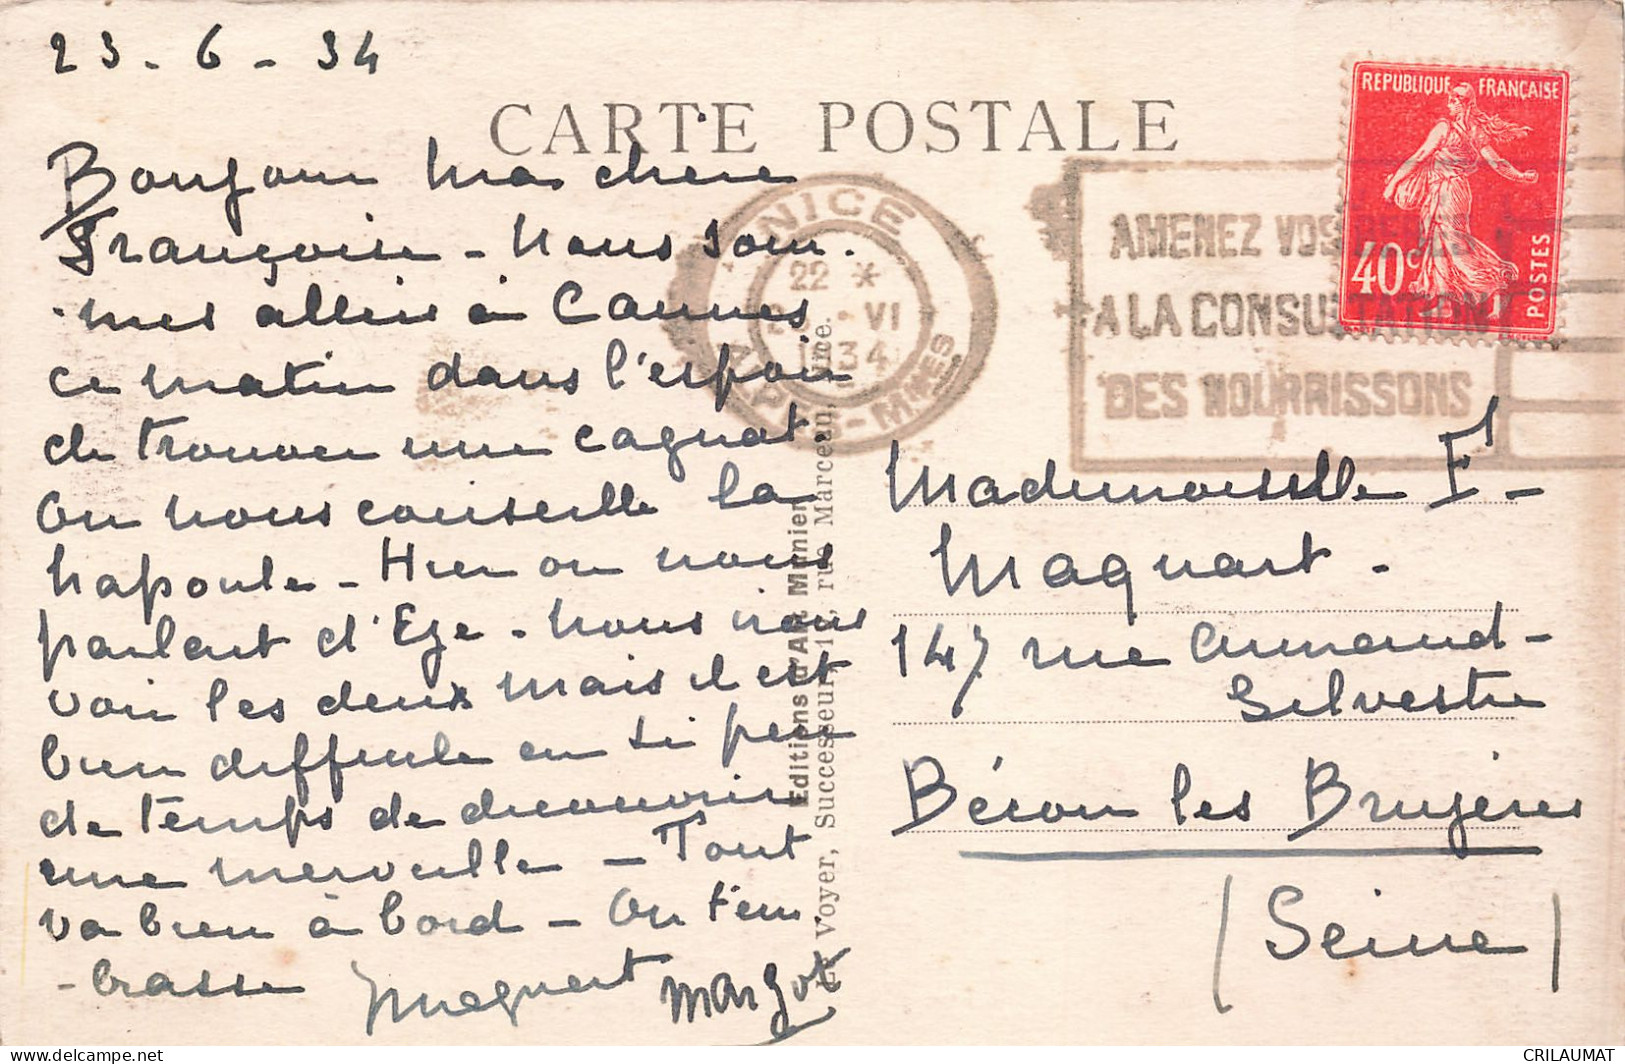 23-6-34
CARTE POSTALE
REPUBLIQUE FRANÇAISE
40c
POSTES
NICE
22 *
VI
1934
ALPES-MMES
AMENEZ VOS BEBES
A LA CONSULTATION
DES NOURRISSONS
Bonjour ma chère
Françoise - Nous som-
-mes allées à Cannes
ce matin dans l'espoir
de trouver une cagnat.
On nous conseille la
Napoule - Hier on nous
parlait d'Eze - Nous irons
voir les deux mais il est
bien difficile en si peu
de temps de découvrir
une merveille - Tout
va bien à bord - On t'em
-brasse Maquart Margot
Editions d'Art Munier
Le Voyer, Successeur, 1, rue Marceau, Nice.
Mademoiselle F -
Maquart -
147 rue Armand -
Silvestre
Bécon les Bruyères
(Seine)
CRILAUMAT